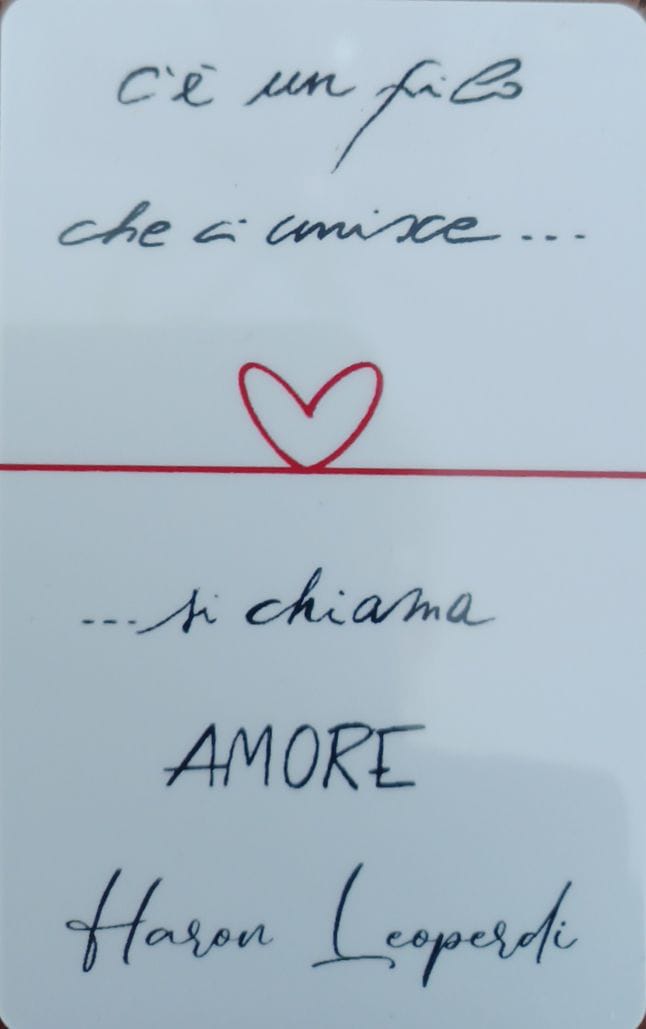 c'è un filo
che ci unisce...
...si chiama
AMORE
Haron Leoperdi